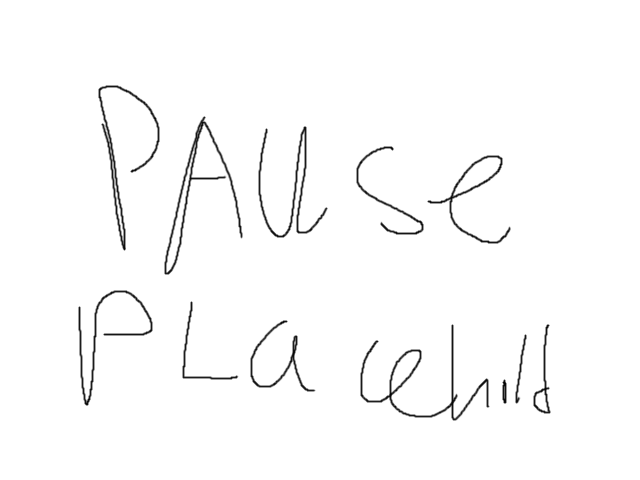 PAUSE
PLacehild